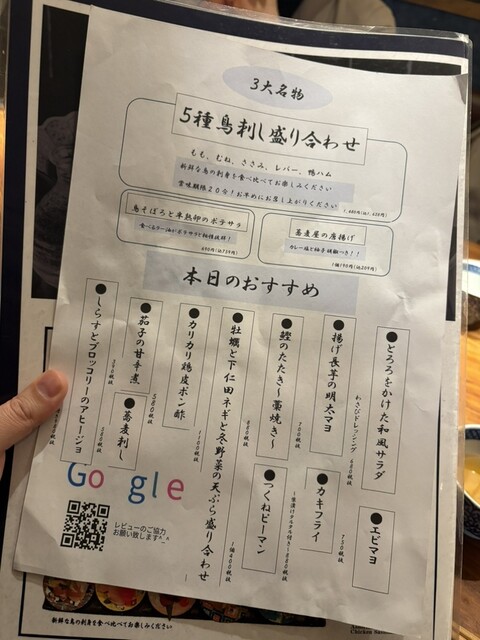 3大名物
5種鳥刺し盛り合わせ
もも、むね、ささみ、レバー、鴨ハム
新鮮な鳥の刺身を食べ比べてお楽しみください
賞味期限20分!お早めにお召し上がりください
1,480円(税1,628円)
鳥そぼろと半熟卵のポテサラ
食べるラー油がポテサラと相性抜群!
690円(税759円)
蕎麦屋の唐揚げ
カレー塩と柚子胡椒つき!!
1個190円(税209円)
本日のおすすめ
●とろろをかけた和風サラダ
わさびドレッシング 680税抜
●エビマヨ
750税抜
●揚げ長芋の明太マヨ
●カキフライ
●鰹のたたき~藁焼き~
700税抜
●つくねピーマン
●牡蠣と下仁田ネギと冬野菜の天ぷら盛り合わせ
880税抜
1個400税抜
●カリカリ鶏皮ポン酢
1100税抜
●茄子の甘辛煮
580税抜
●蕎麦刺し
●しらすとブロッコリーのアヒージョ
Go gle
レビューのご協力
お願い致します^_^
新鮮な鳥の刺身を食べ比べてお楽しみください